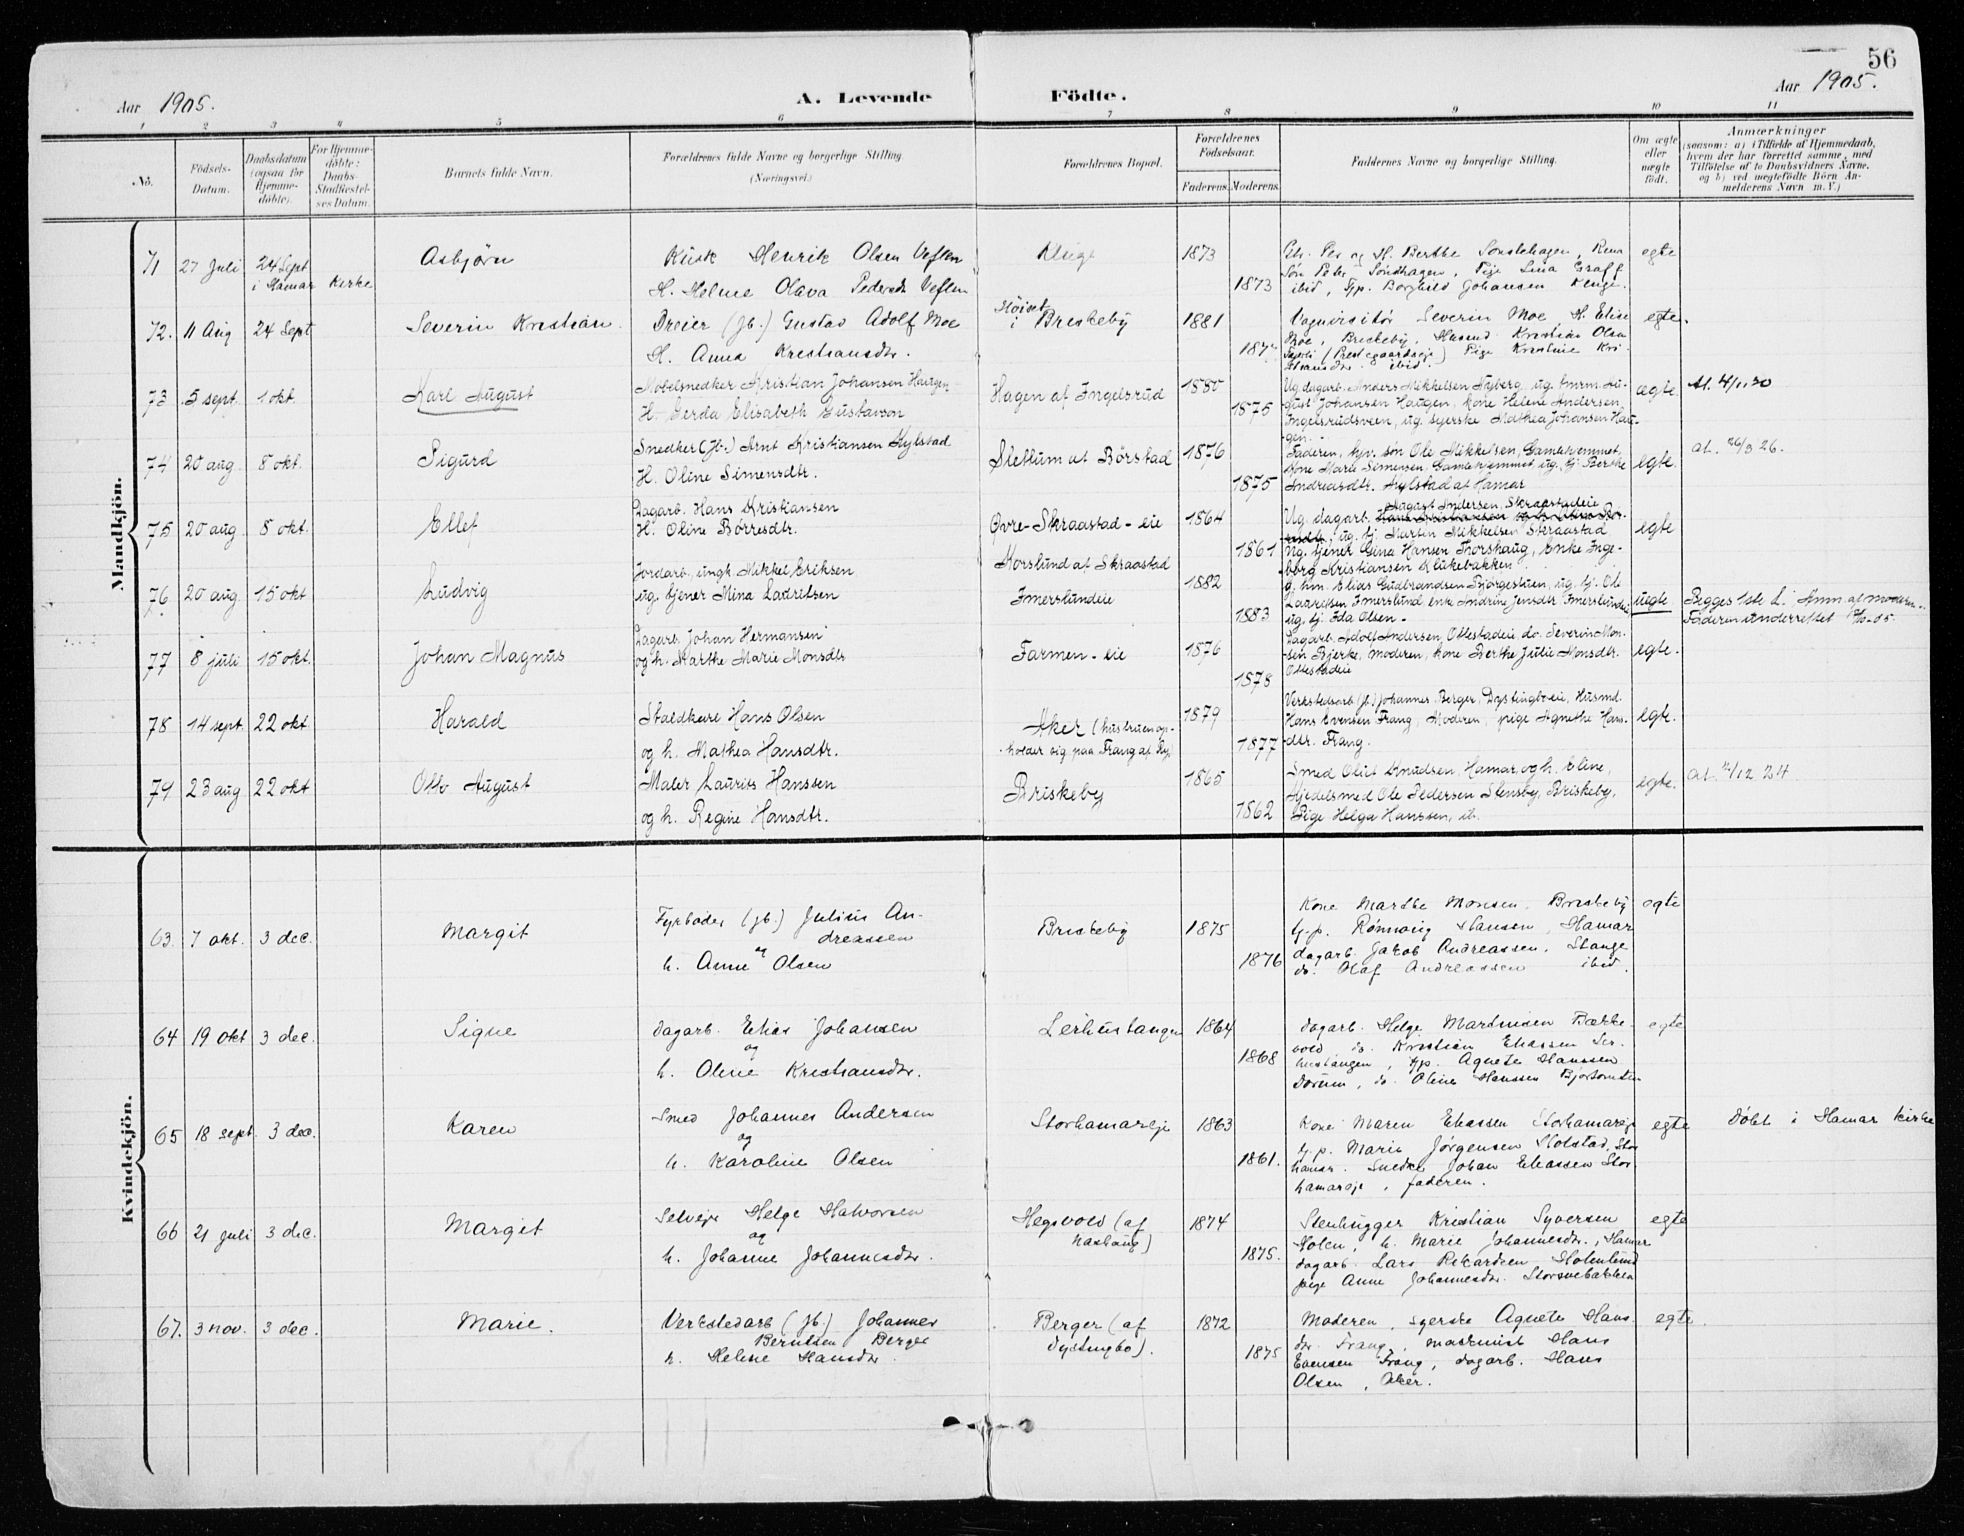 56
Aar 1905. A. Levende Födte. Aar 1905.
1 2 3 4 5 6 7 8 9 10 11
No.
Födsels-
Datum.
Daabsdatum
(ogsaa for
Hjemme-
döbte).
For Hjemme-
döbte:
Daabs-
Stadfæstel-
ses Datum.
Barnets fulde Navn.
Forældrenes fulde Navne og borgerlige Stilling.
(Næringsvei.)
Forældrenes Bopæl.
Forældrenes
Födselsaar.
Faderens. Moderens.
Faddernes Navne og borgerlige Stilling.
Om ægte
eller
uægte
födt.
Anmærkninger
(saasom: a) i Tilfælde af Hjemmedaab,
hvem der har forrettet samme, med
Tilföielse af to Daabsvidners Navne.
og b) ved uægtefödte Börn An-
melderens Navn m. V.)
Mandkjön.
71 27 Juli 24 Sept
i Hamar Kirke
Asbjørn
Kusk Henrik Olsen Veflen
H. Helme Olava Pedersdr Veflen
1873
1873
egte
72. 11 Aug 24 Sept
Severin Kristian
Dreier (Jb.) Gustav Adolf Moe
H. Anna Kristiansdtr.
i Briskeby
1881
Severin Moe, H. Elise
Moe, Briskeby, Husmd Kristian Olsen
(Prestegaardseje) Pige Kristine Kri-
stiansdr. ibid.
egte.
73 5 sept. 1 okt.
Karl August
Møbelsnedker Kristian Johansen Haugen
H. Gerda Elisabeth Gustavson
Hagen af Ingelsrud
1880
1875
Ug. dagarb. Anders Mikkelsen Nyberg, ug. tmrm. Au-
gust Johansen Haugen, kone Helene Andersen,
Ingelsrudsveen, ug. syerske Mathea Johansen Hau-
gen.
ægte
At. 4/11 30
74 20 aug. 8 okt.
Sigurd
Snedker (Jb.) Arnt Kristiansen Kylstad
H. Oline Simensdtr.
Slettum at Børstad
1876
1875
Faderen, hjv. søn Ole Mikkelsen, Gamlehjemmet,
Kone Marie Simensen, Gamlehjemmet, ug. tj. Berthe
Andreasdtr. Kylstad at Hamar
egte.
at. 26/3 26.
75 20 aug. 8 okt.
Ellef
Dagarb. Hans Kristiansen
H. Oline Børresdtr.
Øvre-Skraastad-eie
1864
1861
August Andersen, Skraastadeie
Ug. dagarb. ug. tj. Martin Mikkelsen Skraastad
Ug. tjener Gina Hansen Thorshaug, Enke Inge-
borg Kristiansen Klukebakken
egte
76. 20 aug. 15 okt
Ludvig
Jordarb., ungk. Mikkel Eriksen
ug. tjener Mina Lauritsen
Korslund at Skraastad
Imerslundeie
1882
1883
g. hm. Elias Gudbrandsen Bjørgestuen, ug. tj. Ole
Lauritsen Imerslund, enke Andrine Jensdtr Imerslundeie
ug. tj. Ida Olsen.
uegte
Begges 1ste L. Anm. af moderen.
Faderen underrettet
77 8 juli 15 okt.
Johan Magnus
Dagarb. Johan Hermansen
og h. Marthe Marie Monsdtr
Farmen-eie
1876
1878
Dagarb. Adolf Andersen, Ottestadeie, do. Severin Mon-
sen Bjerke, moderen, kone Berthe Julie Monsdtr.
Ottestadeie
egte.
78 14 sept. 22 okt.
Harald
Staldkarl Hans Olsen
og h. Mathea Hansdtr.
Aker (hustruen op-
holder sig paa Frang at
1879
1877
Verkstedsarb. (jb.) Johannes Berger, Dystingboeie, Husmd.
Hans Evensen Frang, Moderen, pige Agnethe Hans-
dtr. Frang.
egte.
79 23 aug 22 okt
Otto August
Maler Laurits Hanssen
og h. Regine Hansdtr.
Briskeby
1865
1862
Smed Oluf Knudsen, Hamar, og h. Eline,
Hjulmed Ole Pedersen Stensby, Briskeby,
Pige Helga Hanssen, ib.
egte.
At. 2/12 24
Kvindekjön.
63. 7 okt. 3 dec.
Margit
Fyrbøder (jb.) Julius An-
dreassen
og
h. Anne Olsen
Briskeby
1875
1876
Kone Marthe Monsen, Briskeby
tj.p. Rønnaug Hansen, Hamar
dagarb. Jakob Andreassen, Stange
do. Olaf Andreassen ibid.
egte
64 19 okt 3 dec.
Signe
dagarb. Elias Johansen
og
h. Oline Kristiansdr.
Lerhustangen
1864
1868
dagarb. Helge Martinsen Bække-
vold, do. Kristian Eliassen Ler-
hustangen, tjp. Agnete Hanssen
Dørum, do. Oline Hanssen
egte
65 18 sept. 3 dec.
Karen
Smed Johannes Andersen
og
h. Karoline Olsen
Storhamareje
1863
1861.
Kone Maren Eliassen Storhamareje
tj.p. Marie Jørgensen Holstad, Stor
hamar. Snedker Johan Eliassen Stor-
hamareje, faderen.
egte
Døbt i Hamar kirke
66 21 juli 3 dec.
Margit
Selveje Helge Halvorsen
og
h. Johanne Johannesdr.
Hegsvold (af
Nashaug)
1874
1875.
Stenhugger Kristian Syversen
Holen, h. Marie Johannesdr., Hamar
dagarb. Lars Rikardsen Holenlund
pige Anne Johannesdr. Storsvebakken
egte
67. 3 nov. 3 dec.
Marie.
Verkstedarb (jb.) Johannes
Berntsen Berger
h. Helene Hansdr.
Berger (af
Dystingbo).
1872
1875
Moderen, syerske Agnete Hans-
dr. Frang, maskinist Hans
Evensen Frang, dagarb. Hans
Olsen, Aker.
egte.